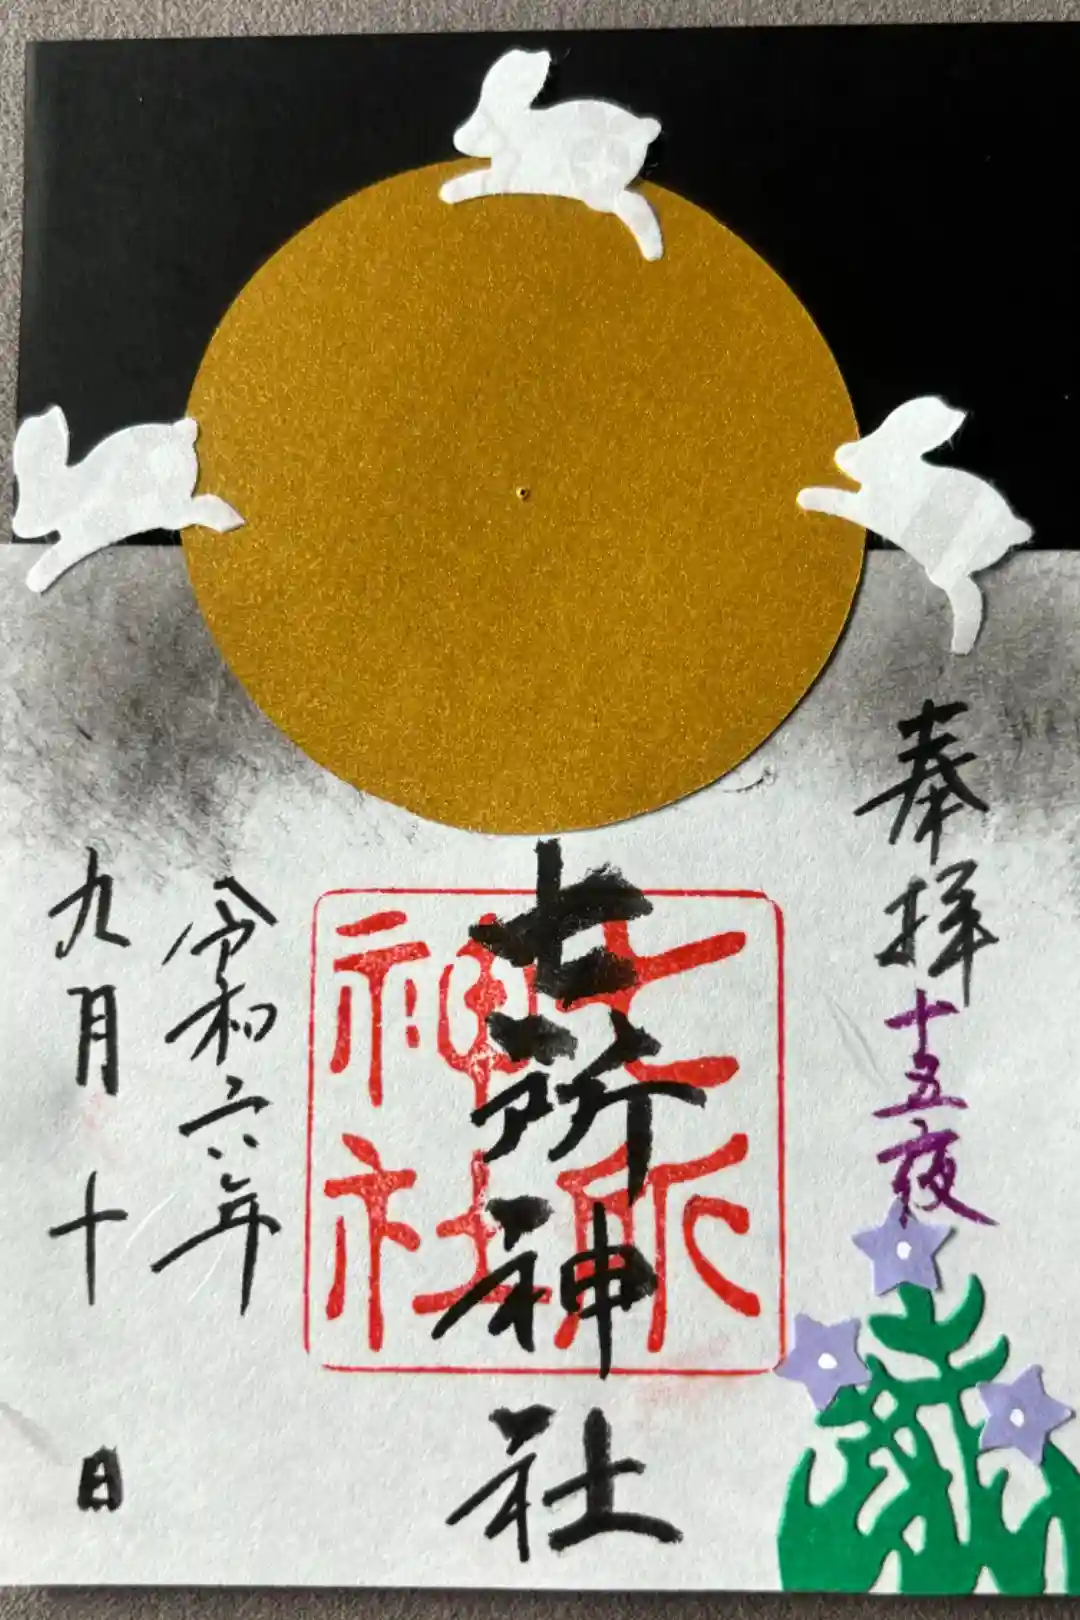 奉拝
十五夜
七所神社
七所
神社
令和六年
九月十日